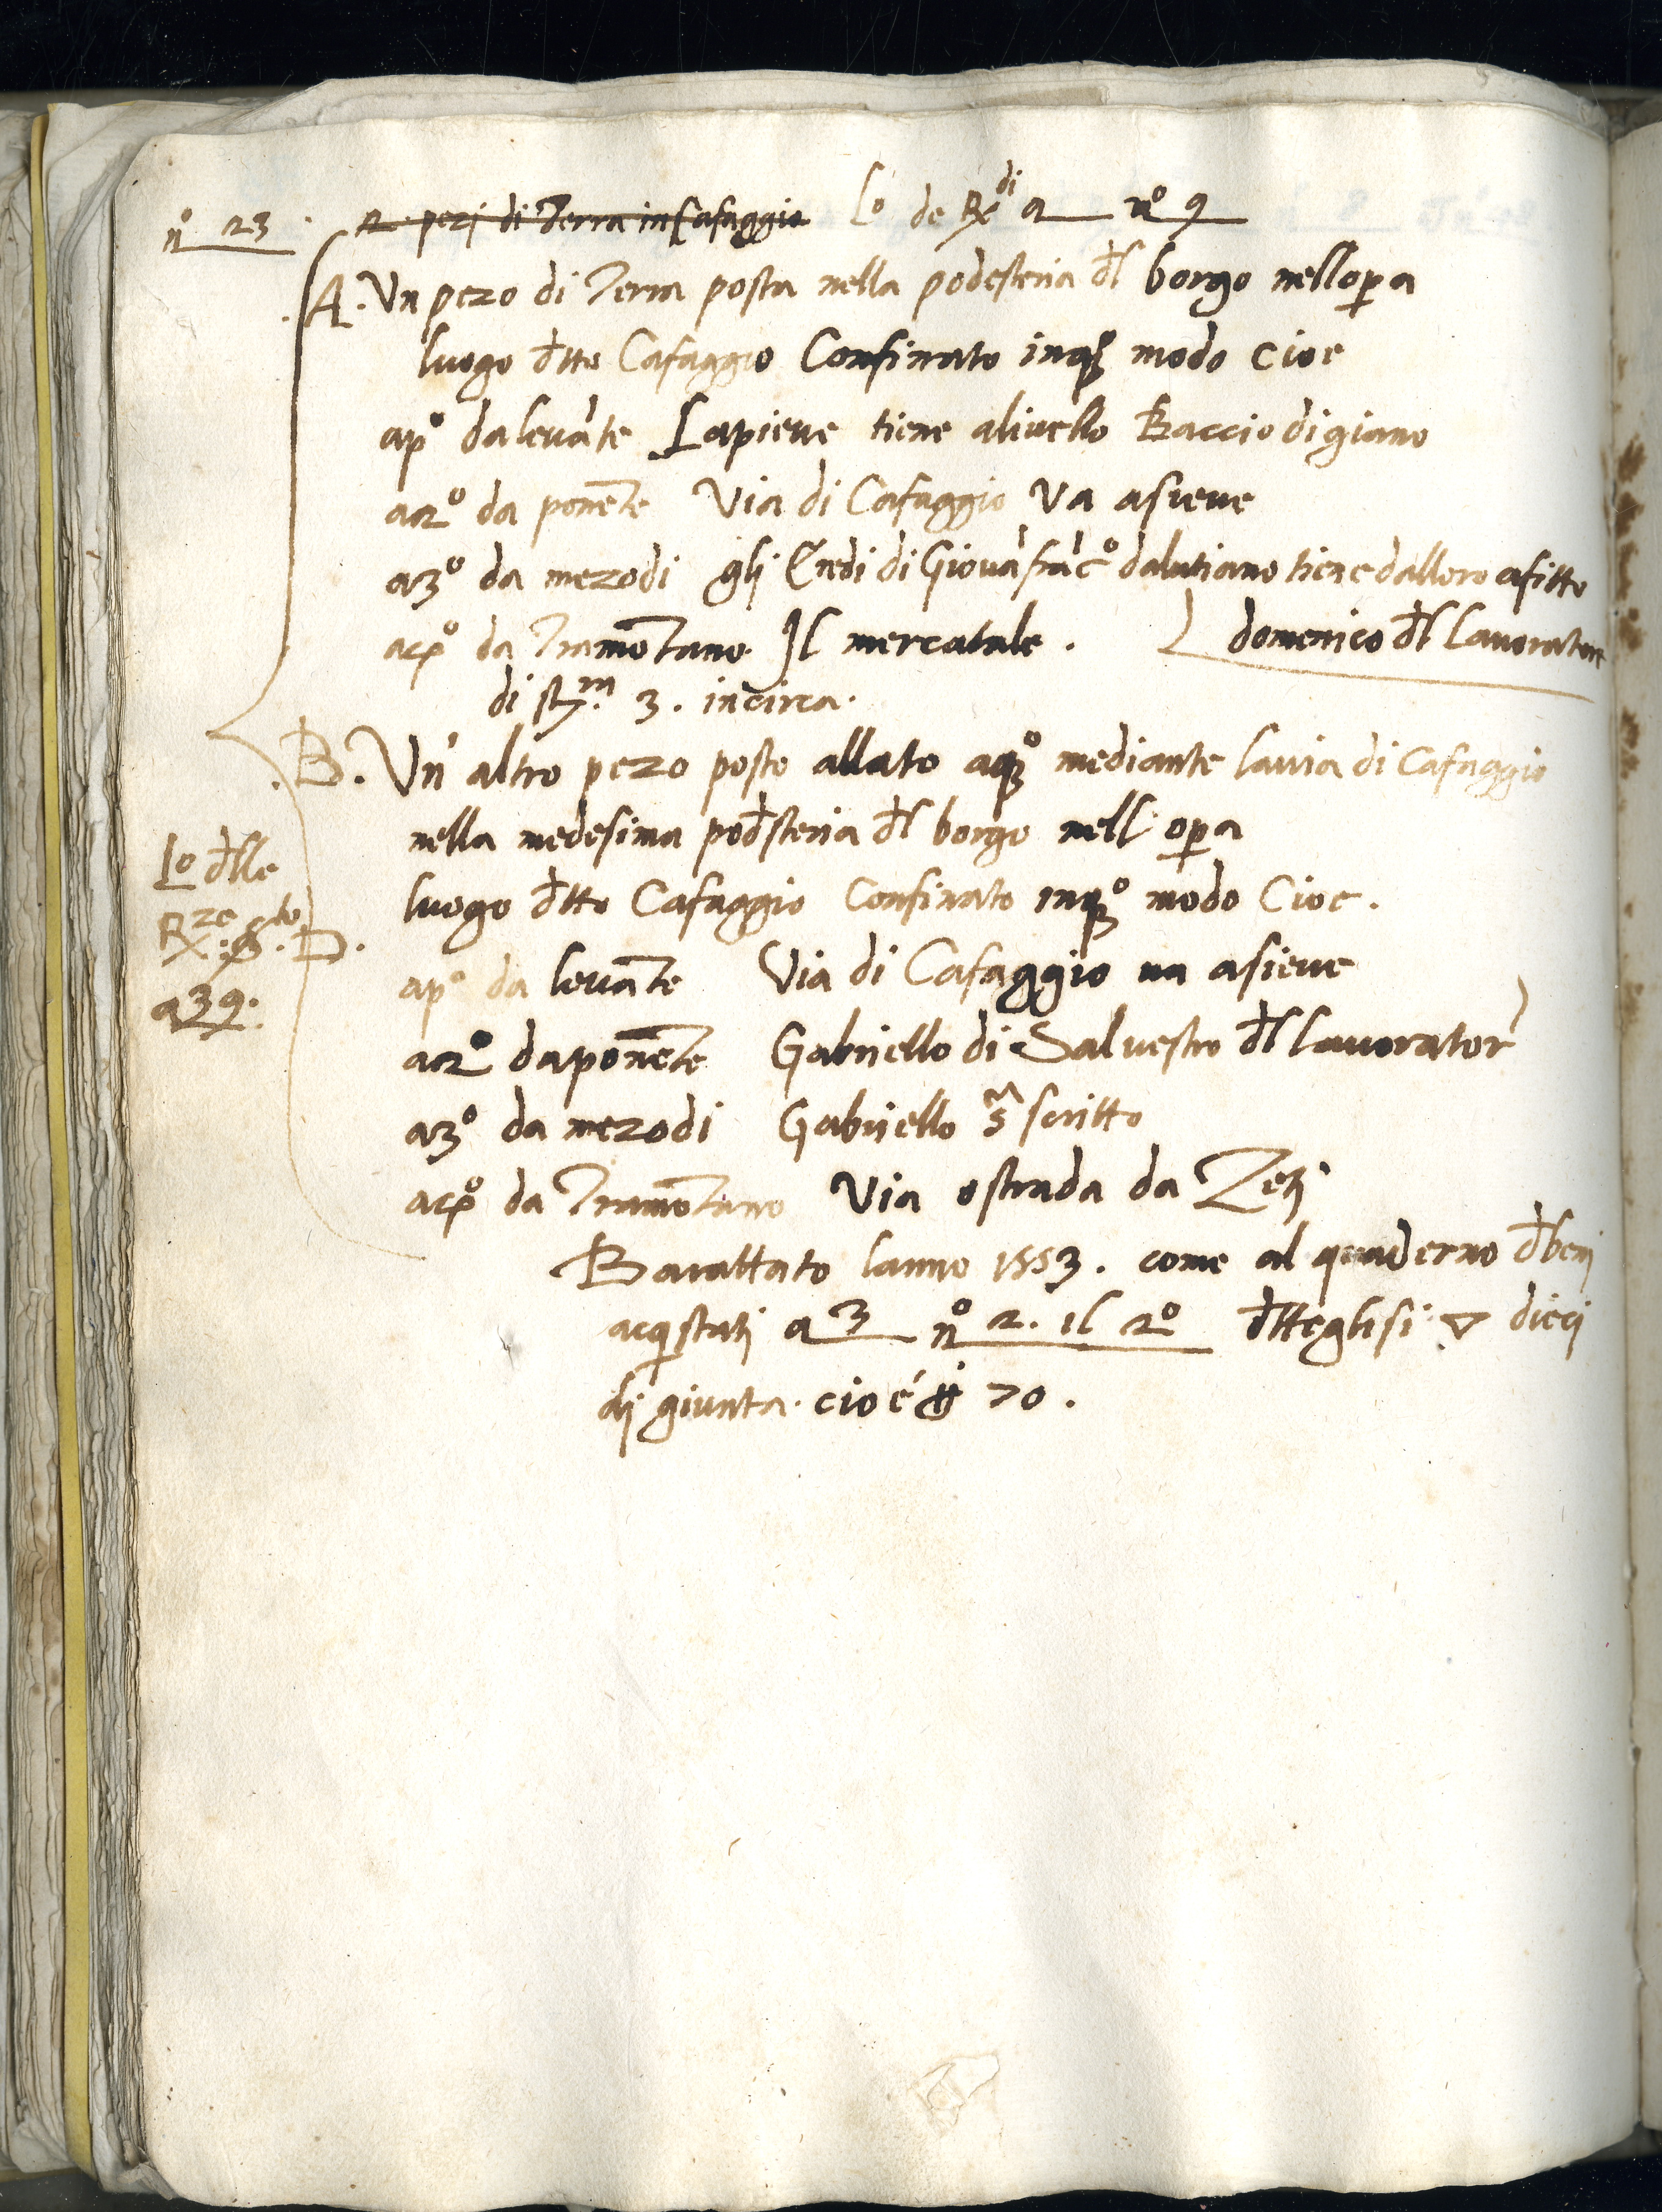 nº 23. 2 pezi di Terra in Cafaggio Lo de Rdi a nº 9
.A. Un pezo di Terra posta nella podesteria dl borgo nellopa
luogo dtto Cafaggio Confinato inqº modo cioe
apº dalevāte Lapieve tiene alivello Baccio digiano
a2º da ponēte Via di Cafaggio va asieve
a3º da mezodi gli Eredi di Giovāfrācº dalutiano tiene dalloro afitto
domenico dl Lavoratore
a4º da Tramōtano Il mercatale.
di stm 3. incirca.
.B. Un altro pezo posto allato aqº mediante lavia di Cafaggio
nella medesima podsteria dl borgo nell opa
luogo dtto Cafaggio Confinato inqº modo Cioe.
Lo dlle
a39.
apº da levāte Via di Cafaggio va asieve
a2º daponēte Gabriello di Salvestro dl lavorator
a3º da mezodi Gabriello sscritto
a4º da Tramōtano Via o strada da Zeti
Barattato lanno 1553. come al quaderno dbeni
acqstati a 3 nº 2. il 2º dtteglisi ▽ dieci
di giunta. cioé ₶ 70.